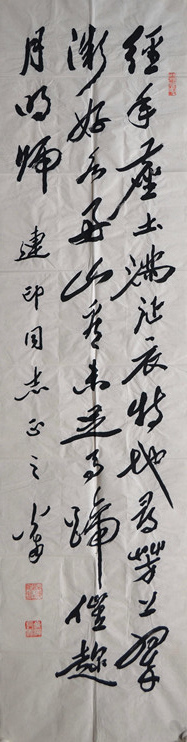 經年塵土滿征衣特地尋芳上翠
微好水好山看未足馬蹄催趁
月明歸
建印同志正之